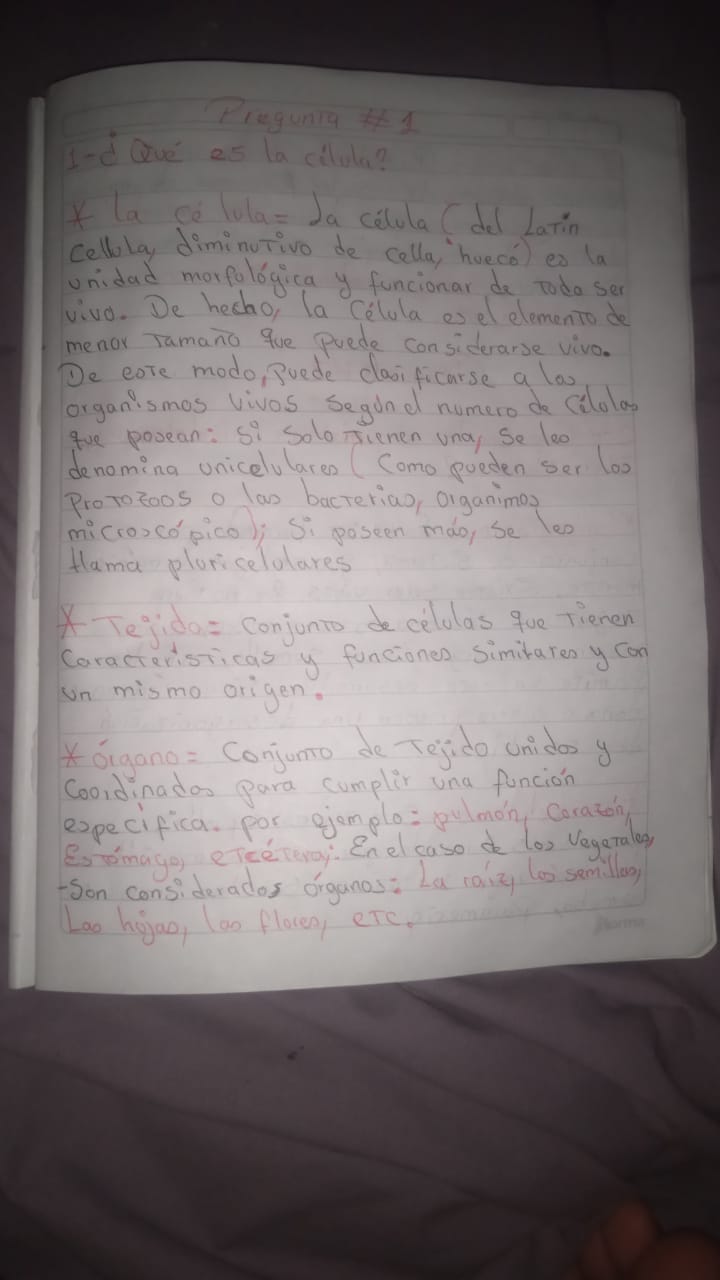 Pregunta #1
1-¿Qué es la célula?
* La célula= La célula (del Latin
cellula, diminutivo de cella, "hueco") es la
unidad morfológica y funcionar de todo ser
vivo. De hecho, la célula es el elemento de
menor tamaño que puede considerarse vivo.
De este modo, puede clasificarse a los
organismos vivos según el numero de células
que posean: si solo tienen una, se les
denomina unicelulares (Como pueden ser los
Protozoos o las bacterias, organimos
microscópico); Si poseen más, se les
llama pluricelulares
* Tejido= Conjunto de células que tienen
Características y funciones similares y con
un mismo origen.
* órgano= Conjunto de tejido unidos y
coordinados para cumplir una función
especifica. por ejemplo: pulmón, corazón,
Estómago, etcétera; En el caso de los vegetales,
-Son considerados órganos: La raíz, los semillas,
Las hojas, las flores, etc.
Norma